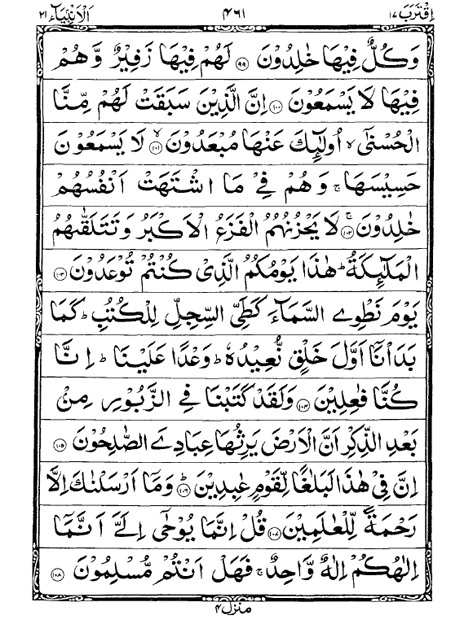 اقترب ١٧ ٤٦١ الانبياء ٢١
وَكُلٌّ فِيْهَا خٰلِدُوْنَ ۝٩٩ لَهُمْ فِيْهَا زَفِيْرٌ وَّهُمْ
فِيْهَا لَا يَسْمَعُوْنَ ۝١٠٠ اِنَّ الَّذِيْنَ سَبَقَتْ لَهُمْ مِّنَّا
الْحُسْنٰٓى ۙ اُولٰٓئِكَ عَنْهَا مُبْعَدُوْنَ ۙ۝١٠١ لَا يَسْمَعُوْنَ
حَسِيْسَهَا ۚ وَهُمْ فِيْ مَا اشْتَهَتْ اَنْفُسُهُمْ
خٰلِدُوْنَ ۚ۝١٠٢ لَا يَحْزُنُهُمُ الْفَزَعُ الْاَكْبَرُ وَتَتَلَقّٰىهُمُ
الْمَلٰٓئِكَةُ ؕ هٰذَا يَوْمُكُمُ الَّذِيْ كُنْتُمْ تُوْعَدُوْنَ ۝١٠٣
يَوْمَ نَطْوِي السَّمَآءَ كَطَيِّ السِّجِلِّ لِلْكُتُبِ ؕ كَمَا
بَدَاْنَآ اَوَّلَ خَلْقٍ نُّعِيْدُهٗ ؕ وَعْدًا عَلَيْنَا ؕ اِنَّا
كُنَّا فٰعِلِيْنَ ۝١٠٤ وَلَقَدْ كَتَبْنَا فِي الزَّبُوْرِ مِنْۢ
بَعْدِ الذِّكْرِ اَنَّ الْاَرْضَ يَرِثُهَا عِبَادِيَ الصّٰلِحُوْنَ ۝١٠٥
اِنَّ فِيْ هٰذَا لَبَلٰغًا لِّقَوْمٍ عٰبِدِيْنَ ؕ۝١٠٦ وَمَآ اَرْسَلْنٰكَ اِلَّا
رَحْمَةً لِّلْعٰلَمِيْنَ ۝١٠٧ قُلْ اِنَّمَا يُوْحٰٓى اِلَيَّ اَنَّمَآ
اِلٰهُكُمْ اِلٰهٌ وَّاحِدٌ ۚ فَهَلْ اَنْتُمْ مُّسْلِمُوْنَ ۝١٠٨
منزل ٤